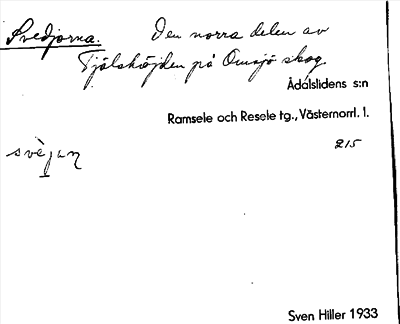 Svedjorna. Den norra delen av
Tjälshöjden på Omsjö skog
Ådalslidens s:n
Ramsele och Resele tg., Västernorrl. l.
215
svèjan
Sven Hiller 1933